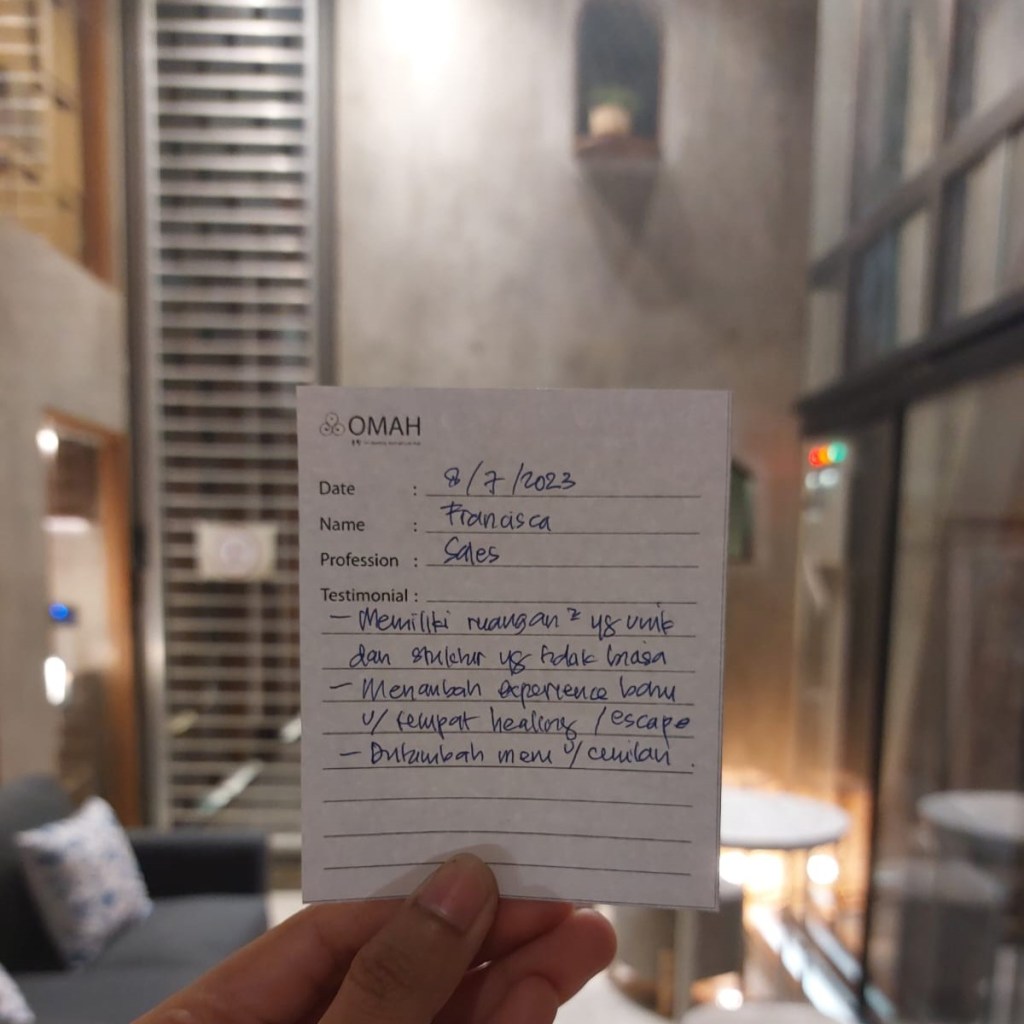 OMAH
Date : 8/7/2023
Name : Francisca
Profession : Sales
Testimonial :
- Memiliki ruangan² yg unik
dan struktur yg tidak biasa
- Menambah experience baru
u/ tempat healing / escape
- Ditambah menu u/ cemilan.